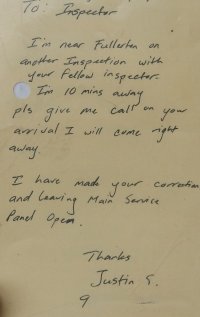 To: Inspector
I'm near Fullerton on
another Inspection with
your fellow inspector.
I'm 10 mins away
pls give me call on your
arrival I will come right
away.
I have made your correction
and Leaving Main Service
Panel Open.
Thanks
Justin S.
9